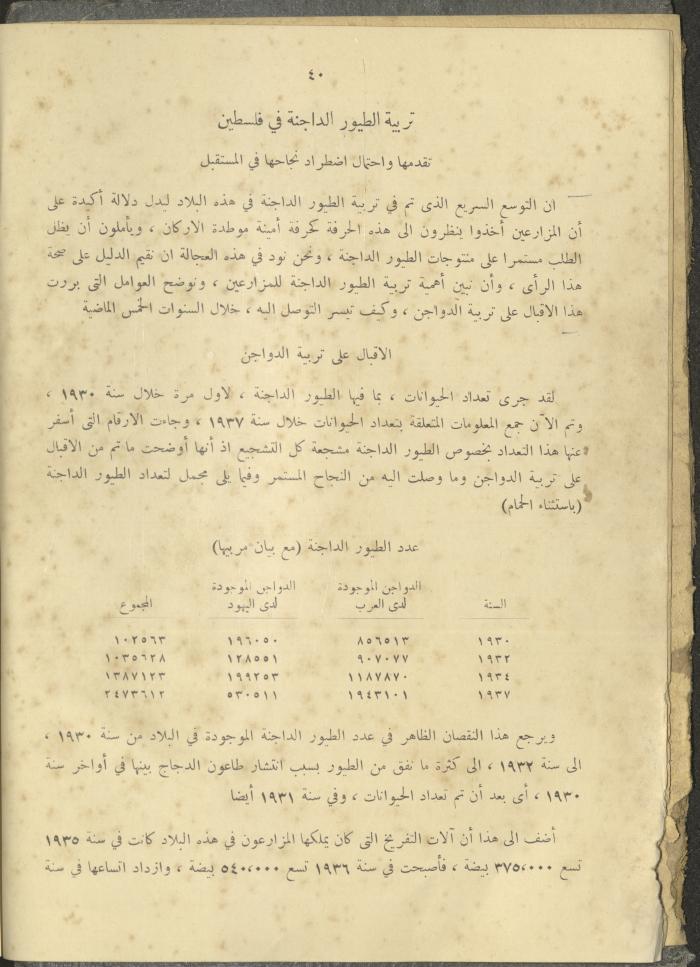 ٤٠
تربية الطيور الداجنة في فلسطين
تقدمها واحتمال اضطراد نجاحها في المستقبل
ان التوسع السريع الذى تم في تربية الطيور الداجنة في هذه البلاد ليدل دلالة أكيدة على
أن المزارعين أخذوا ينظرون الى هذه الحرفة كحرفة أمينة موطدة الاركان ، ويأملون أن يظل
الطلب مستمرا على منتوجات الطيور الداجنة ، ونحن نود في هذه العجالة ان نقيم الدليل على صحة
هذا الرأى ، وأن نبين أهمية تربية الطيور الداجنة للمزارعين ، ونوضح العوامل التى بررت
هذا الاقبال على تربية الدواجن ، وكيف تيسر التوصل اليه ، خلال السنوات الخمس الماضية
الاقبال على تربية الدواجن
لقد جرى تعداد الحيوانات ، بما فيها الطيور الداجنة ، لاول مرة خلال سنة ١٩٣٠ ،
وتم الآن جمع المعلومات المتعلقة بتعداد الحيوانات خلال سنة ١٩٣٧ ، وجاءت الارقام التى أسفر
عنها هذا التعداد بخصوص الطيور الداجنة مشجعة كل التشجيع اذ أنها أوضحت ما تم من الاقبال
على تربية الدواجن وما وصلت اليه من النجاح المستمر وفيما يلى مجمل لتعداد الطيور الداجنة
(باستثناء الحمام)
عدد الطيور الداجنة (مع بيان مربيها)
الدواجن الموجودة الدواجن الموجودة
السنة لدى العرب لدى اليهود المجموع
١٩٣٠ ٨٥٦٥١٣ ١٩٦٠٥٠ ١٠٢٥٦٣
١٩٣٢ ٩٠٧٠٧٧ ١٢٨٥٥١ ١٠٣٥٦٢٨
١٩٣٤ ١١٨٧٨٧٠ ١٩٩٢٥٣ ١٣٨٧١٢٣
١٩٣٧ ١٩٤٣١٠١ ٥٣٠٥١١ ٢٤٧٣٦١٢
ويرجع هذا النقصان الظاهر في عدد الطيور الداجنة الموجودة في البلاد من سنة ١٩٣٠ ،
الى سنة ١٩٣٢ ، الى كثرة ما نفق من الطيور بسبب انتشار طاعون الدجاج بينها في أواخر سنة
١٩٣٠ ، أى بعد أن تم تعداد الحيوانات ، وفي سنة ١٩٣١ أيضا
أضف الى هذا أن آلات التفريخ التى كان يملكها المزارعون في هذه البلاد كانت في سنة ١٩٣٥
تسع ٣٧٥،٠٠٠ بيضة ، فأصبحت في سنة ١٩٣٦ تسع ٥٤٠،٠٠٠ بيضة ، وازداد اتساعها في سنة